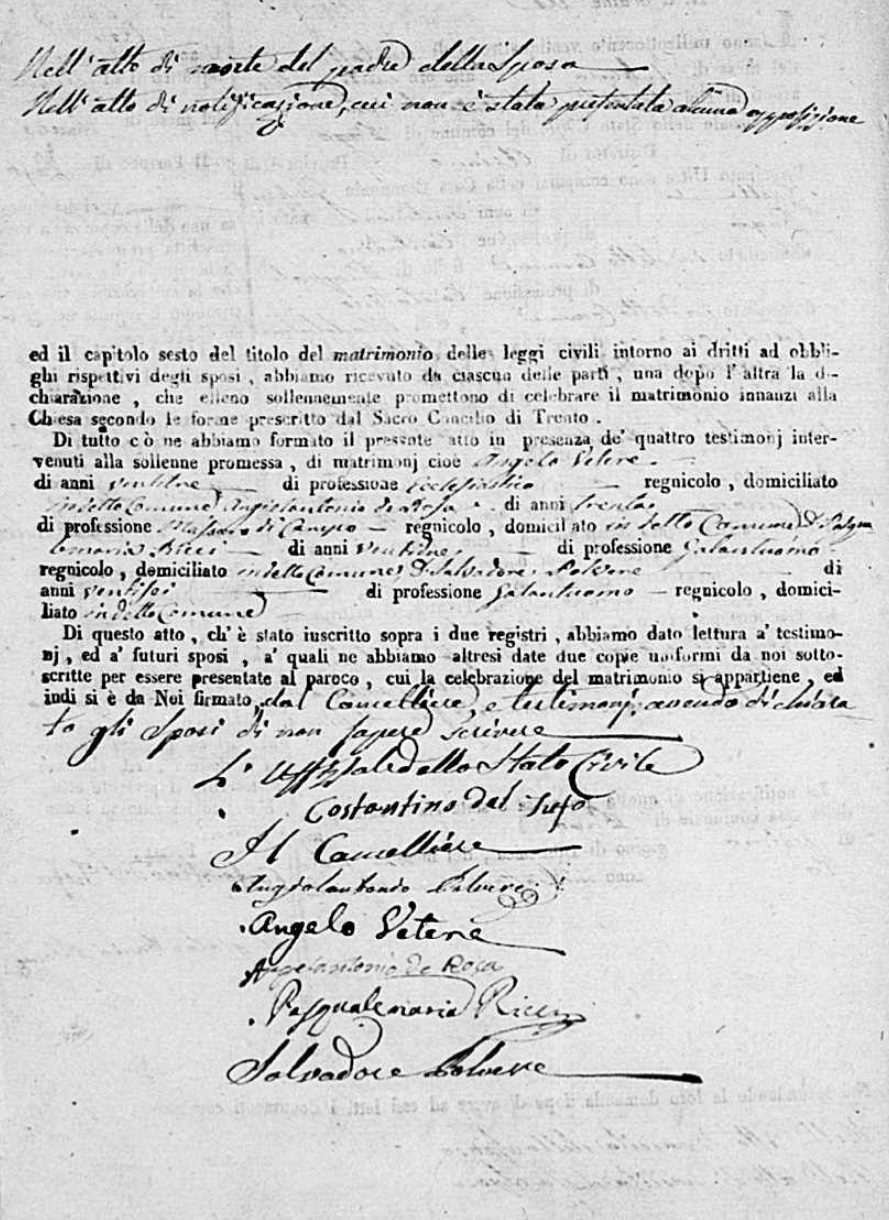 Nell' atto di morte del padre della Sposa
Nell' atto di notificazione, cui non è stata presentata alcuna opposizione
ed il capitolo sesto del titolo del matrimonio delle leggi civili intorno ai dritti ad obbli-
ghi rispettivi degli sposi, abbiamo ricevuto da ciascun delle parti, una dopo l' altra la di-
chiarazione, che elleno sollennemente promettono di celebrare il matrimonio innanzi alla
Chiesa secondo le forme prescritto dal Sacro Concilio di Trento.
Di tutto c ò ne abbiamo formato il presente atto in presenza de' quattro testimonj inter-
venuti alla sollenne promessa, di matrimonj cioè Angelo Vetere
di anni ventitre di professione Ecclesiastico regnicolo, domiciliato
in detto Comune, Angiolantonio de Rosa di anni trenta
di professione Massaro di Campo regnicolo, domicil ato in detto Comune, D. Pasqua
lemaria Ricci di anni ventitre di professione Galantuomo
regnicolo, domiciliato in detto Comune, D. Salvadore Polvere di
anni ventisei di professione Galantuomo regnicolo, domici-
liato in detto Comune
Di questo atto, ch' è stato iuscritto sopra i due registri, abbiamo dato lettura a' testimo-
nj, ed a' futuri sposi, a' quali ne abbiamo altresi date due copie uniformi da noi sotto-
scritte per essere presentate al paroco, cui la celebrazione del matrimonio si appartiene, ed
indi si è da Noi firmato, dal Cancelliere e testimonj, avendo dichiara
to gli Sposi di non sapere scrivere
L' Uffiziale dello Stato Civile
Costantino del
Il Cancelliere
Angiolantonio Polvere
Angelo Vetere
Angelantonio de Rosa
Pasqualemaria Ricci
Salvadore Polvere